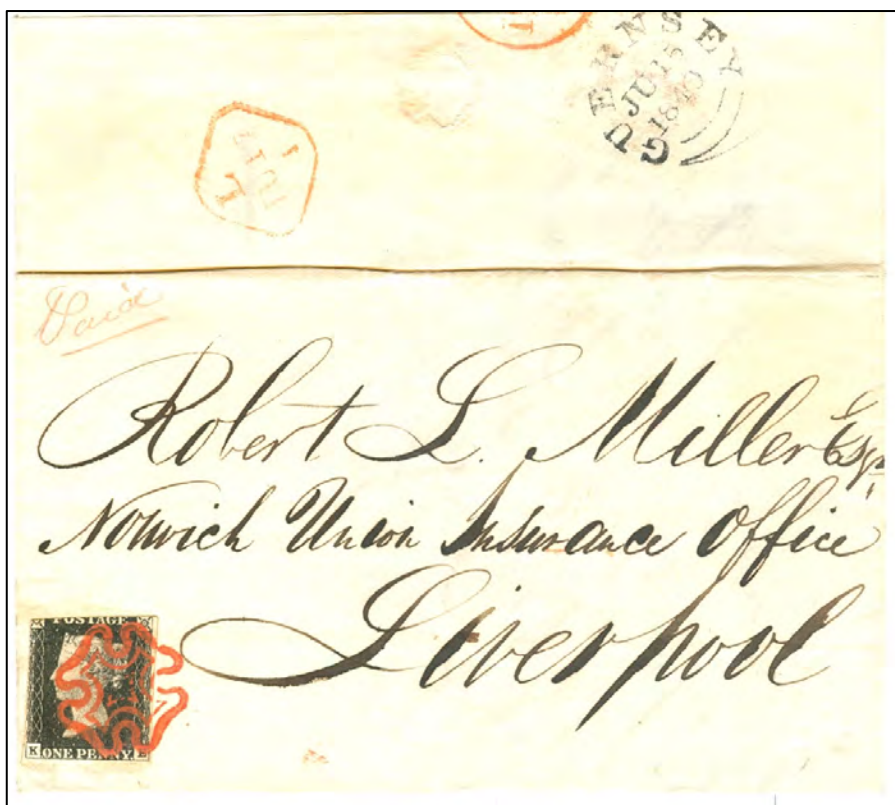 GUERNSEY
JU 15
1840
Paid
Robert L. Miller Esqr
Norwich Union Insurance Office
Liverpool
POSTAGE
K ONE PENNY